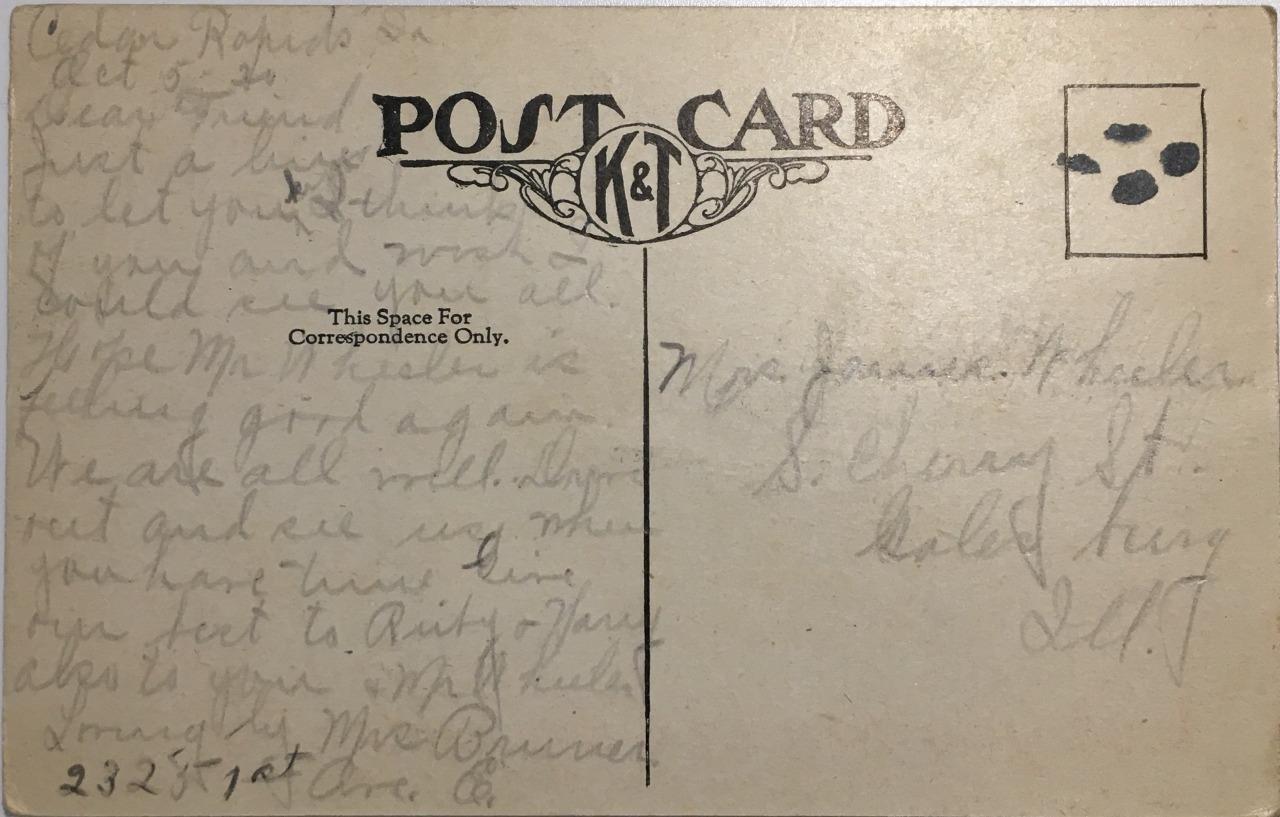 Cedar Rapids Ia
Oct 5-20
Dear Friend
Just a line
to let you I think
of you and wish I
could see you all.
Hope Mr Wheeler is
feeling good again.
We are all well. Drive
out and see us when
you have time Give
our best to Ruby &
also to your & Mr Wheeler
Loving by Mrs Bruner
2325 1st Ave. E.
POST CARD
K&T
This Space For
Correspondence Only.
Mrs Wheeler
S. Cherry St.
Galesburg
Ill.